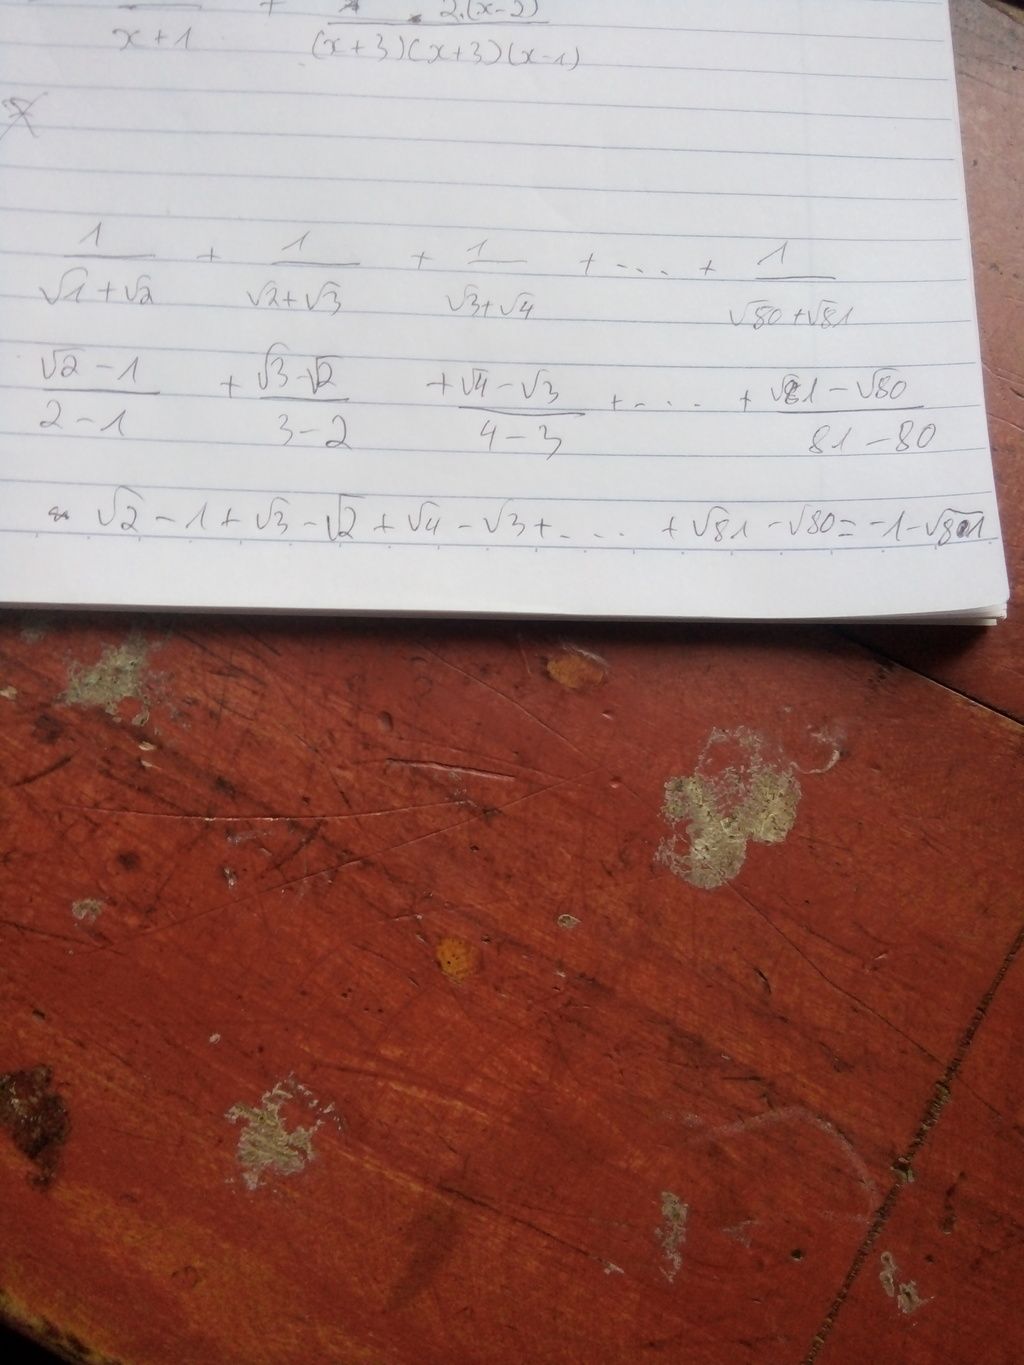 + 2.(x-2)
x+1 (x+3)(x+3)(x-1)
1/(√1+√2) + 1/(√2+√3) + 1/(√3+√4) + .... + 1/(√80+√81)
(√2-1)/(2-1) + (√3-√2)/(3-2) + (√4-√3)/(4-3) + .... + (√81-√80)/(81-80)
√2-1+√3-√2+√4-√3+.... +√81-√80=-1-√81